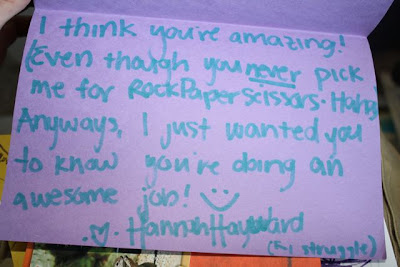 I think you're amazing!
(Even though you never pick
me for RockPaperScissors. Haha)
Anyways, I just wanted you
to know you're doing an
awesome job!
Hannah Hayward
(5-1 struggle)